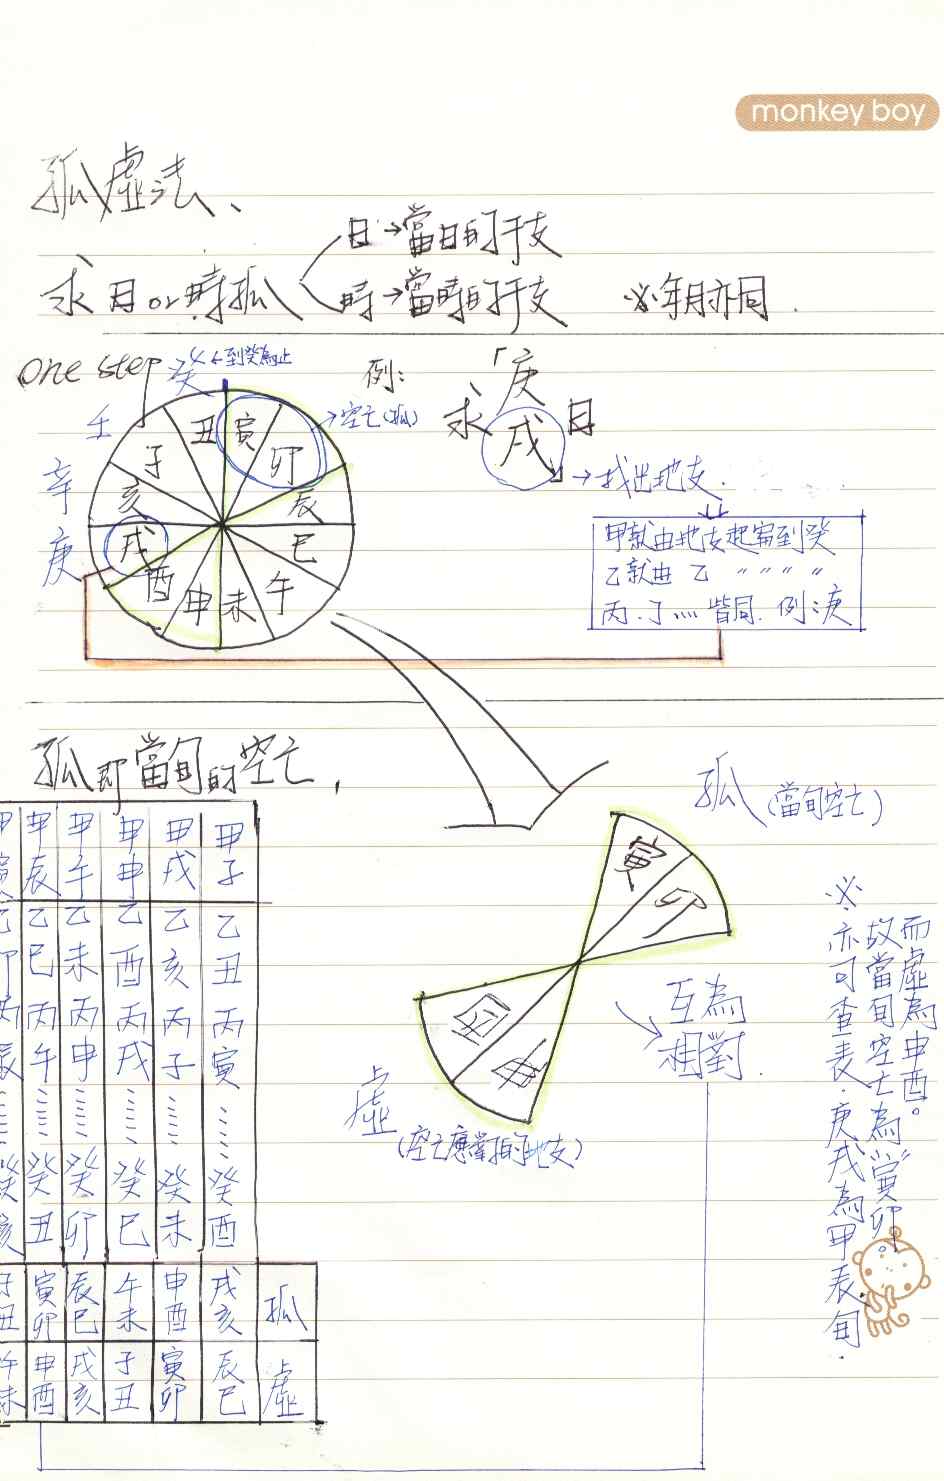 monkey boy
孤虛法、
求日or時孤
日→當日的干支
時→當時的干支
※年月亦同.
one step
癸←到癸為止
壬
辛
庚
子 丑 寅 卯 辰 巳 午 未 申 酉 戌 亥
→空亡(孤)
例:
求「庚戌」日
→找出地支.
甲就由地支起寫到癸
乙就由乙 〃 〃 〃 〃
丙.丁⋯皆同. 例:庚
孤即當旬的空亡,
甲寅 甲辰 甲午 甲申 甲戌 甲子
乙卯 乙巳 乙未 乙酉 乙亥 乙丑
丙辰 丙午 丙申 丙戌 丙子 丙寅
癸亥 癸丑 癸卯 癸巳 癸未 癸酉
子丑 寅卯 辰巳 午未 申酉 戌亥 孤
午未 申酉 戌亥 子丑 寅卯 辰巳 虛
孤(當旬空亡)
寅 卯
酉 申
互為
相對
虛
(空亡應對的地支)
※亦可查表.庚戌為甲辰旬.
故當旬空亡為"寅卯"。
而虛為申酉。